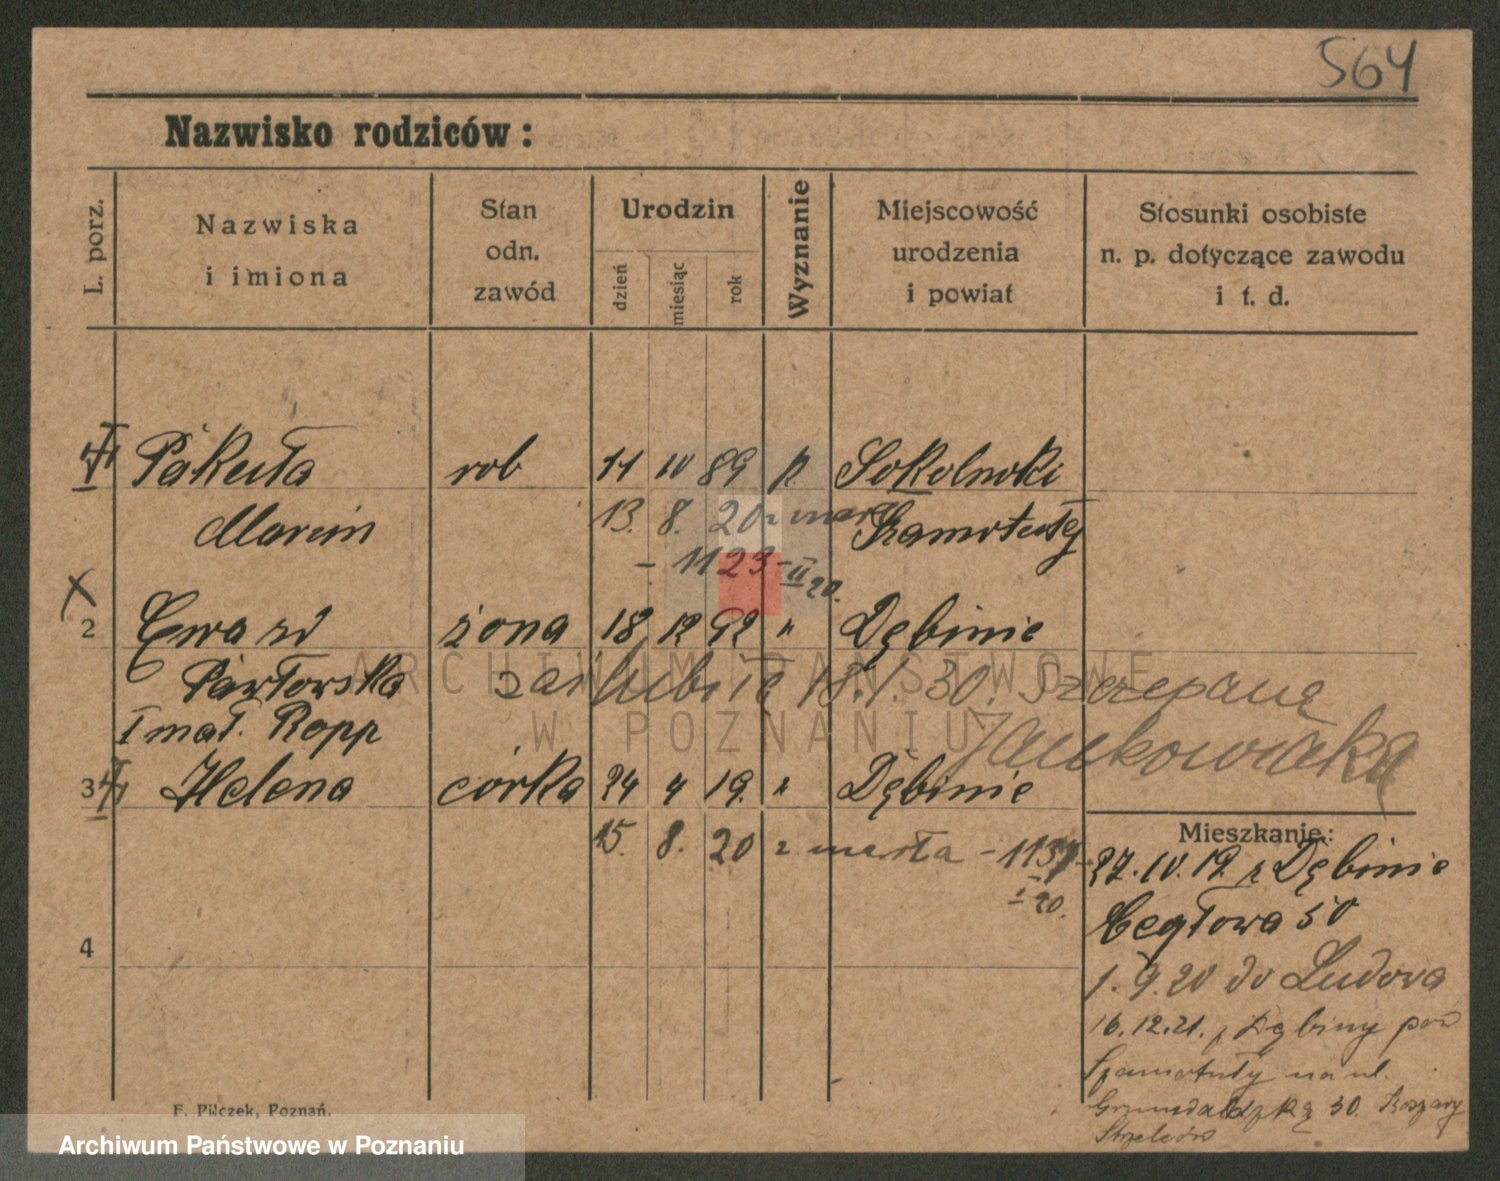 564
Nazwisko rodziców:
L. porz.
Nazwiska
i imiona
Stan
odn.
zawód
Urodzin
dzień
miesiąc
rok
Wyznanie
Miejscowość
urodzenia
i powiat
Stosunki osobiste
n. p. dotyczące zawodu
i t. d.
1 Pakuła rob 11 10 89 k Sokolniki
Marcin 13. 8. 20 zmarł Szamotuły
- 1123 - II 20.
2 Ewa zd żona 18 12 92 " Dębinie
Piaxtowska zaślubiła 18.1.30. Szczepana
I mał. Ropp Jankowiaka
3 Helena córka 24 4 19. " Dębinie
15. 8. 20 zmarła - 1137 -
I 20.
4
Mieszkanie:
27.10.19. z Dębinie
Cegłowa 50
1.9.20 do Ludowa
16.12.21. z Dębiny pow
Szamotuły na ul.
Grunwaldzką 30. Koszary
Strzelców
F. Pilczek, Poznań.
ARCHIWUM PAŃSTWOWE
W POZNANIU
Archiwum Państwowe w Poznaniu